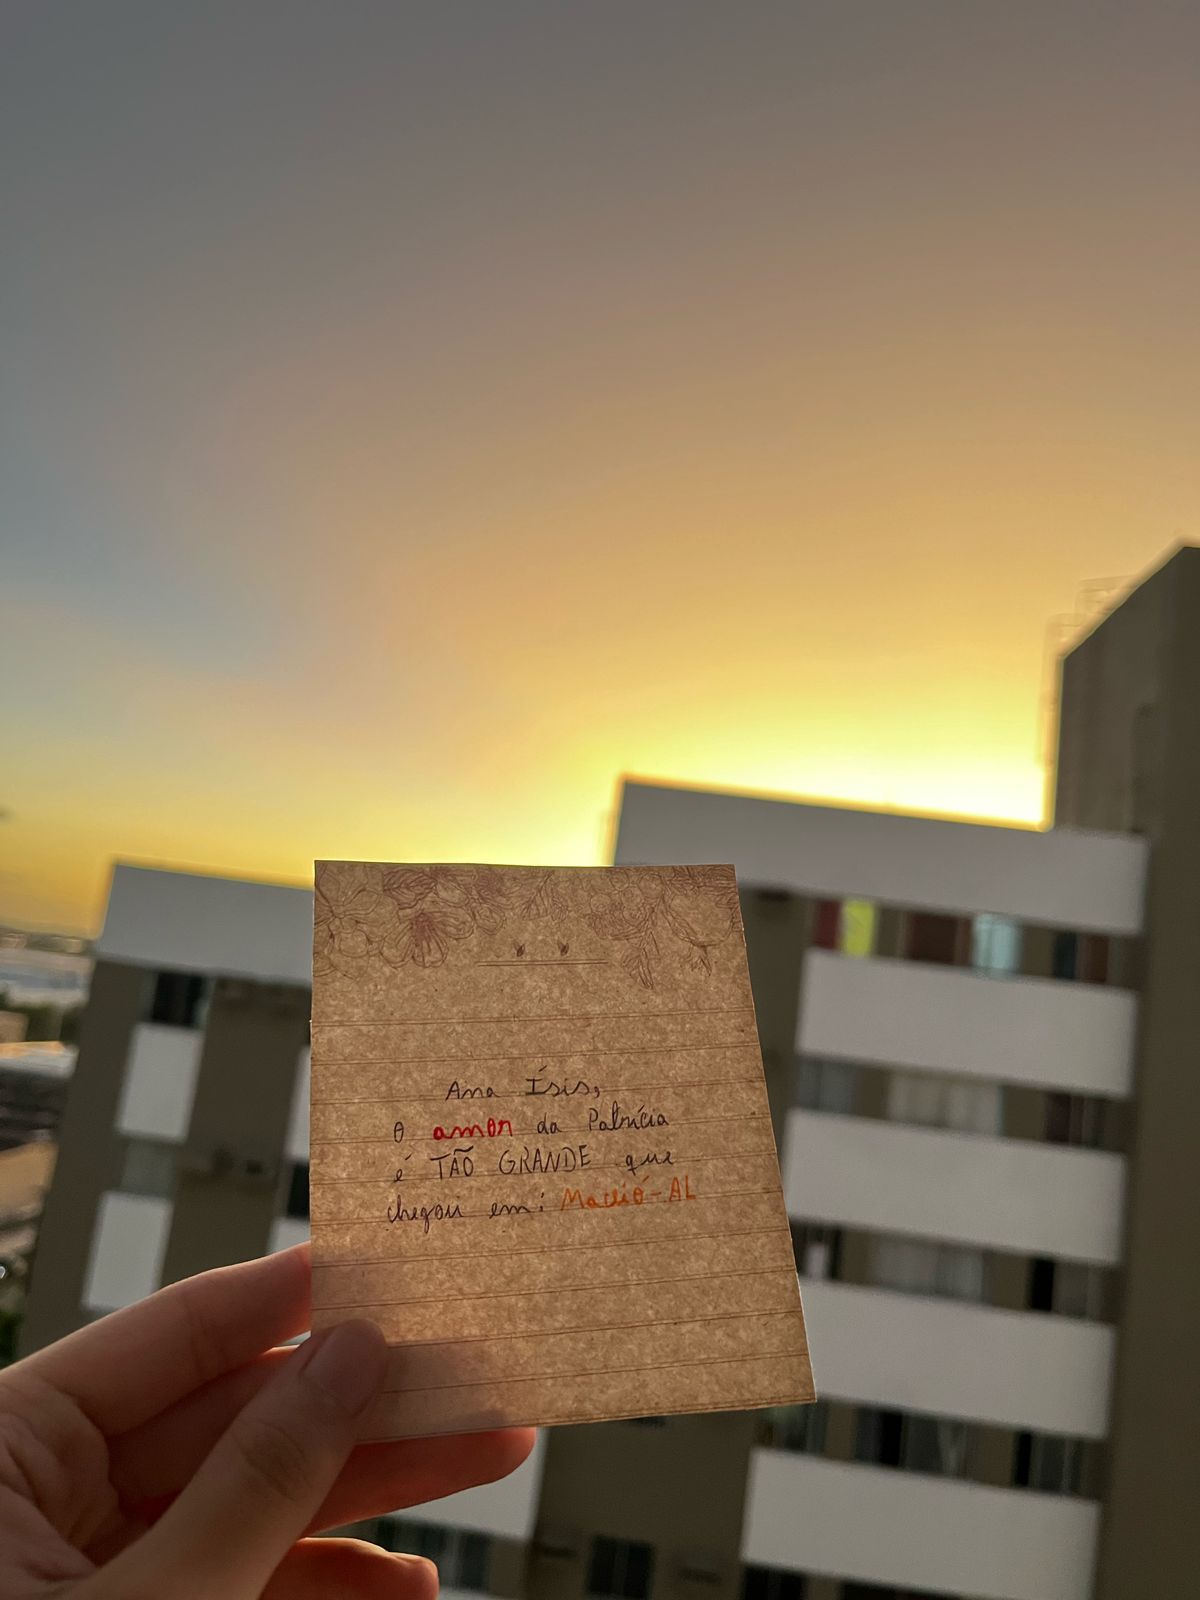 Ana Ísis,
O amor da Patrícia
é TÃO GRANDE que
chegou em: Maceió-AL